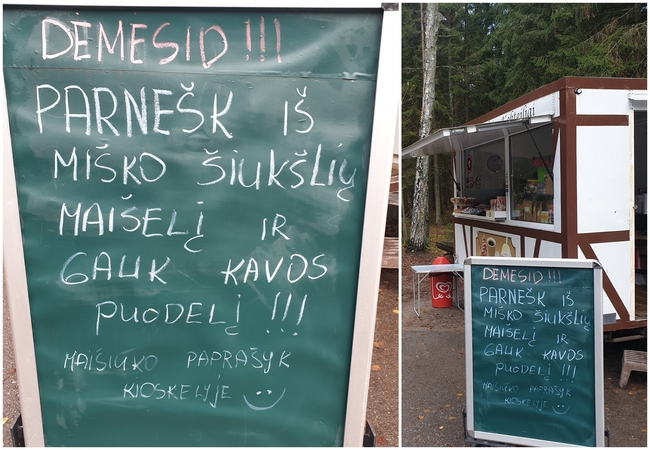 DĖMESIO !!!
PARNEŠK IŠ
MIŠKO ŠIUKŠLIŲ
MAIŠELĮ IR
GAUK KAVOS
PUODELĮ !!!
MAIŠIUKO PAPRAŠYK
KIOSKELYJE
DĖMESIO !!!
PARNEŠK IŠ
MIŠKO ŠIUKŠLIŲ
MAIŠELĮ IR
GAUK KAVOS
PUODELĮ !!!
MAIŠIUKO PAPRAŠYK
KIOSKELYJE